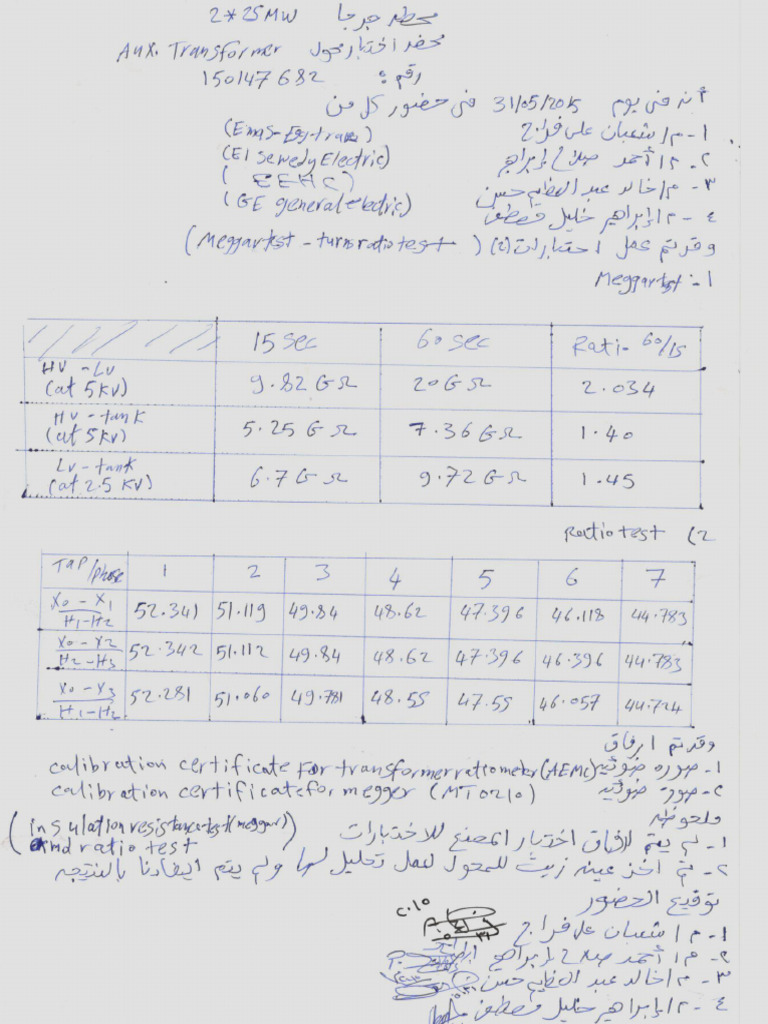 محطه جرجا 2*25MW
محضر اختبار محول Aux. Transformer
رقم: 150147682
أنه فى يوم 31/05/2015 فى حضور كل من
١- م/ شعبان على فراج (Ems-Egy-trans)
٢- م/ أحمد صلاح إبراهيم (El sewedy Electric)
٣- م/ خالد عبد العظيم حسن (EEHC)
٤- م/ إبراهيم خليل مصطفى (GE general electric)
وقد تم عمل اختبارات (2) (Meggar test - turns ratio test)
١- Meggar test
15 sec 60 sec Rati- 60/15
HV - LV (at 5KV) 9.82 GΩ 20 GΩ 2.034
HV - tank (at 5KV) 5.25 GΩ 7.36 GΩ 1.40
LV - tank (at 2.5 KV) 6.7 GΩ 9.72 GΩ 1.45
2) Ratio test
TAP/phase 1 2 3 4 5 6 7
X0-X1 / H1-H2 52.341 51.119 49.84 48.62 47.396 46.118 44.783
X0-X2 / H2-H3 52.342 51.112 49.84 48.62 47.396 46.396 44.783
X0-X3 / H1-H2 52.281 51.060 49.781 48.55 47.55 46.057 44.724
وقد تم ارفاق
١- صوره ضوئيه calibration certificate for transformer ratiometer (AEMC)
٢- صورة ضوئية calibration certificate for megger (MT0210)
ملحوظه
١- لم يتم إرفاق اختبار المصنع للاختبارات (insulation resistance test (meggar) and ratio test)
٢- تم اخذ عينه زيت للمحول لعمل تحليل لها ولم يتم إيفادنا بالنتيجه
توقيع الحضور
١- م/ شعبان على فراج
٢- م/ أحمد صلاح إبراهيم
٣- م/ خالد عبد العظيم حسن
٤- م/ إبراهيم خليل مصطفى